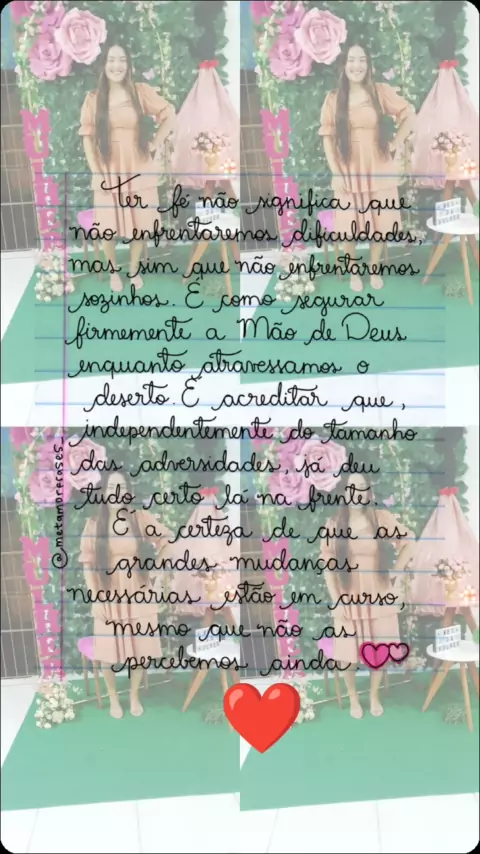 MULHER
MULHER
Ter fé não significa que
não enfrentaremos dificuldades,
mas sim que não enfrentaremos
sozinhos. É como segurar
firmemente a Mão de Deus
enquanto atravessamos o
deserto. É acreditar que,
independentemente do tamanho
das adversidades, já deu
tudo certo lá na frente.
É a certeza de que as
grandes mudanças
necessárias estão em curso,
mesmo que não as
percebemos ainda.
@metamorfases_
MULHER
MULHER